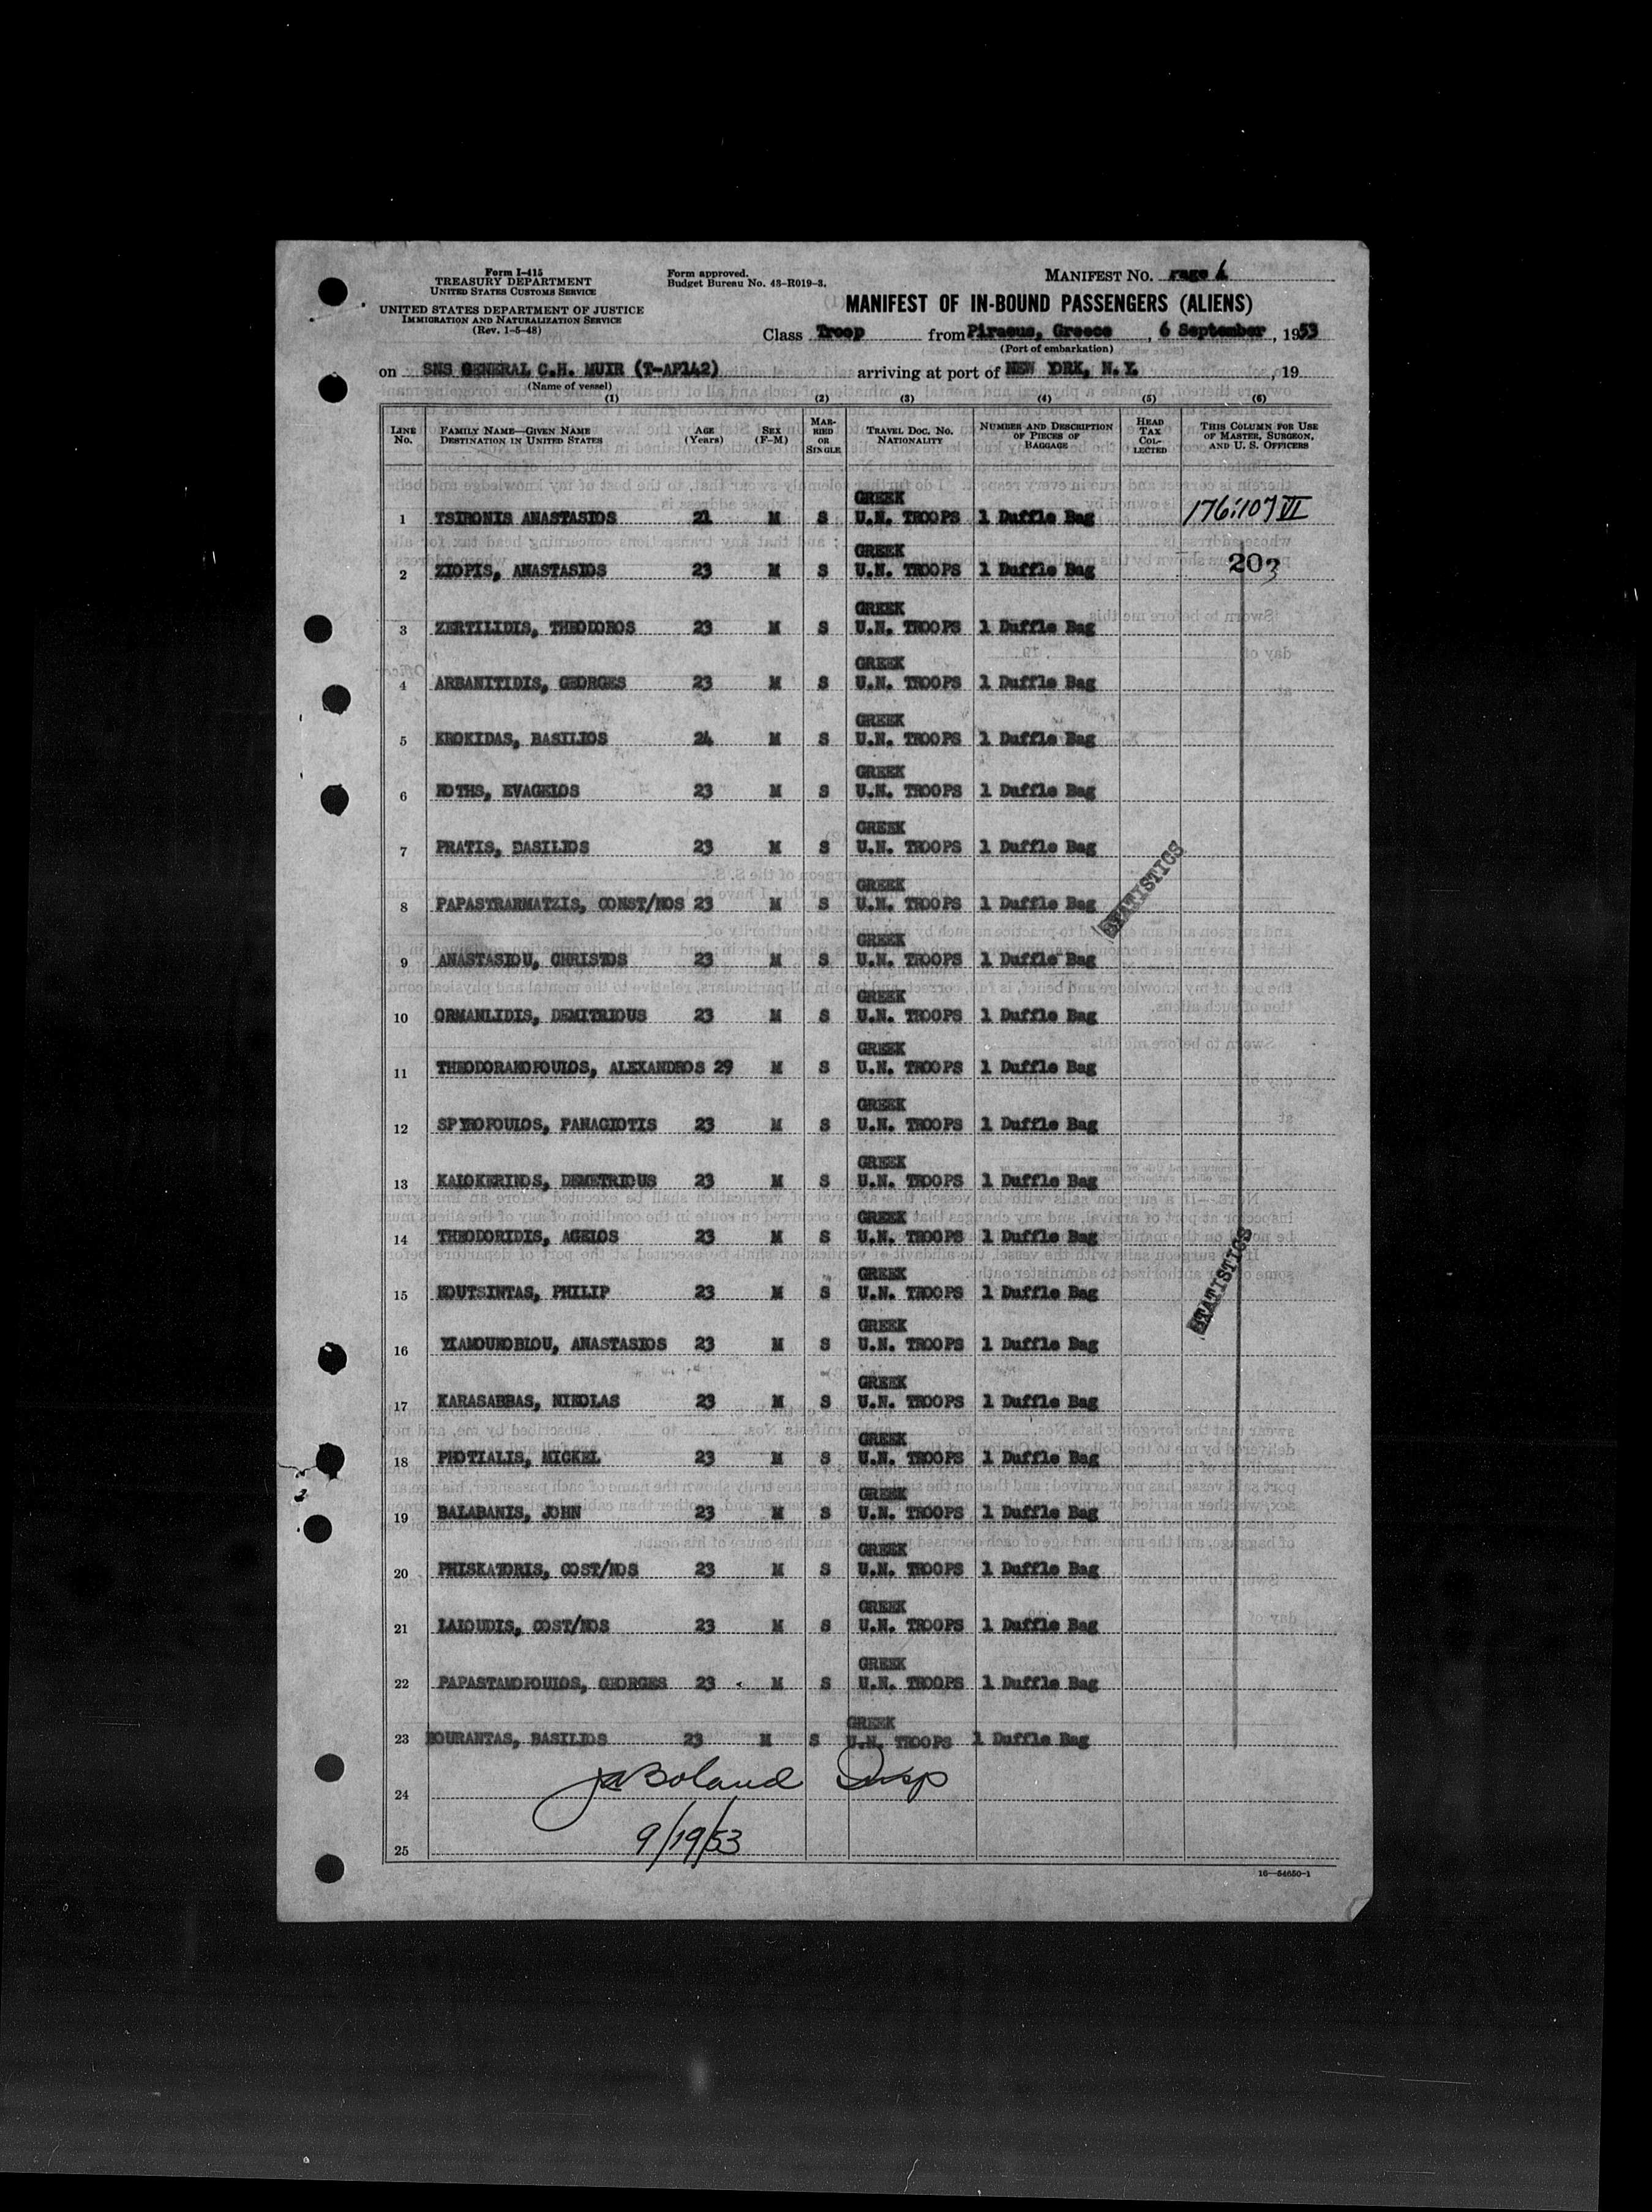 Form I-415
TREASURY DEPARTMENT
UNITED STATES CUSTOMS SERVICE
UNITED STATES DEPARTMENT OF JUSTICE
IMMIGRATION AND NATURALIZATION SERVICE
(Rev. 1-5-48)
Form approved.
Budget Bureau No. 43-R019-3.
MANIFEST NO.
MANIFEST OF IN-BOUND PASSENGERS (ALIENS)
Class Troop from Piraeus, Greece, 6 September, 1953
(Port of embarkation)
on SNS GENERAL C.H. MUIR (T-AP142) arriving at port of NEW YORK, N.Y., 19
(Name of vessel)
(1) (2) (3) (4) (5) (6)
LINE No. FAMILY NAME—GIVEN NAME DESTINATION IN UNITED STATES AGE (Years) SEX (F-M) MARRIED OR SINGLE TRAVEL DOC. NO. NATIONALITY NUMBER AND DESCRIPTION OF PIECES OF BAGGAGE HEAD TAX COLLECTED THIS COLUMN FOR USE OF MASTER, SURGEON, AND U. S. OFFICERS
1 TSIRONIS ANASTASIOS 21 M S GREEK U.N. TROOPS 1 Duffle Bag 176:107 VI
2 ZIOPIS, ANASTASIOS 23 M S GREEK U.N. TROOPS 1 Duffle Bag 203
3 ZERTILIDIS, THEODOROS 23 M S GREEK U.N. TROOPS 1 Duffle Bag
4 ARBANITIDIS, GEORGES 23 M S GREEK U.N. TROOPS 1 Duffle Bag
5 KROKIDAS, BASILIOS 24 M S GREEK U.N. TROOPS 1 Duffle Bag
6 KOTHS, EVAGELOS 23 M S GREEK U.N. TROOPS 1 Duffle Bag
7 PRATIS, BASILIOS 23 M S GREEK U.N. TROOPS 1 Duffle Bag
8 PAPASTRARMATZIS, CONST/NOS 23 M S GREEK U.N. TROOPS 1 Duffle Bag STATISTICS
9 ANASTASIOU, CHRISTOS 23 M S GREEK U.N. TROOPS 1 Duffle Bag
10 ORMANLIDIS, DEMITRIOUS 23 M S GREEK U.N. TROOPS 1 Duffle Bag
11 THEODORAKOPOULOS, ALEXANDROS 29 M S GREEK U.N. TROOPS 1 Duffle Bag
12 SPYROPOULOS, PANAGIOTIS 23 M S GREEK U.N. TROOPS 1 Duffle Bag
13 KALOKERINOS, DEMETRIOUS 23 M S GREEK U.N. TROOPS 1 Duffle Bag
14 THEODORIDIS, AGELOS 23 M S GREEK U.N. TROOPS 1 Duffle Bag
15 KOUTSINTAS, PHILIP 23 M S GREEK U.N. TROOPS 1 Duffle Bag STATISTICS
16 YIAMOUKOBLOU, ANASTASIOS 23 M S GREEK U.N. TROOPS 1 Duffle Bag
17 KARASABBAS, NIKOLAS 23 M S GREEK U.N. TROOPS 1 Duffle Bag
18 PHOTIALIS, MICKEL 23 M S GREEK U.N. TROOPS 1 Duffle Bag
19 BALABANIS, JOHN 23 M S GREEK U.N. TROOPS 1 Duffle Bag
20 PHISKATORIS, COST/NOS 23 M S GREEK U.N. TROOPS 1 Duffle Bag
21 LALOUDIS, COST/NOS 23 M S GREEK U.N. TROOPS 1 Duffle Bag
22 PAPASTAMOPOULOS, GEORGES 23 M S GREEK U.N. TROOPS 1 Duffle Bag
23 KOURANTAS, BASILIOS 23 M S GREEK U.N. TROOPS 1 Duffle Bag
24 Ja Boland Insp
25 9/19/53
16—54650-1